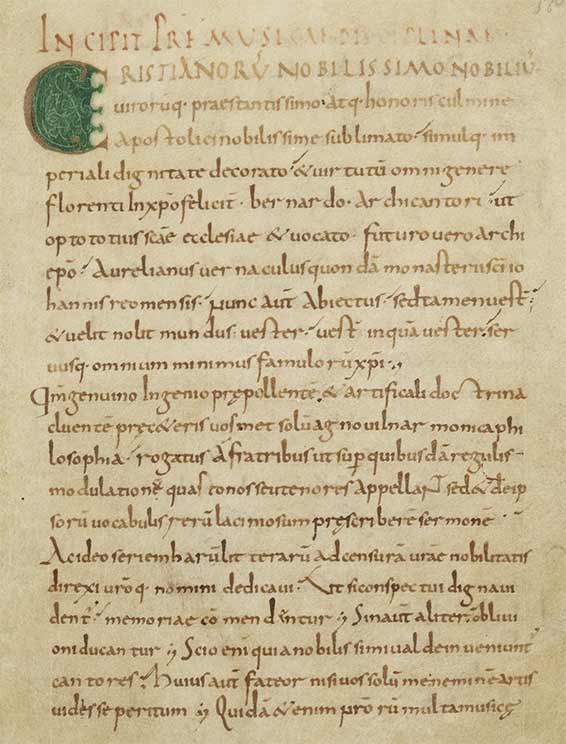 INCIPIT PREMUSICAE DISCIPLINAE
CRISTIANORŪ NOBILISSIMO NOBILIŪ
uirorūq· praestantissimo· atq· honoris culmine
apostolici nobilissime sublimato· simulq· im
periali dignitate decorato· & uirtutū omni genere
florenti In xpō felicit· bernardo· archicantori· ut
opto totius scāe ecclesiae & uocato· futuro uero archi
epō· Aurelianus uernaculus quondā monasterii sci io
hannis reomensis· Nunc aūt Abiectus· sed tamen uest
& uelit nolit mundus· uester· uest inquā uester· ser
uusq· omnium minimus famulorū xpi·
Ingenuino Ingenio prępollentē· & artificali doctrina
cluentē pręc&eris uosmet solū agnoui In armonica phi
losophia· rogatus A fratribus ut sup quibusdā regulis
modulationū quas tonos seu tenores appellant sed & de ip
sorū uocabulis rerū laciniosum pręscriberē sermonē
Ac ideo seriem harū litterarū ad censurā urae nobilitatis
direxi uroq· nomini dedicaui· Ut si conspectui digna ui
dent· memoriae cōmendentur Sin aut aliter· obliui
oni ducantur Scio eni quia nobilis simi ualde inueniunt
cantores· huius aut fateor nisi uos solū me nemine artis
uidesse peritum Quidā &enim pro rū multa musicę